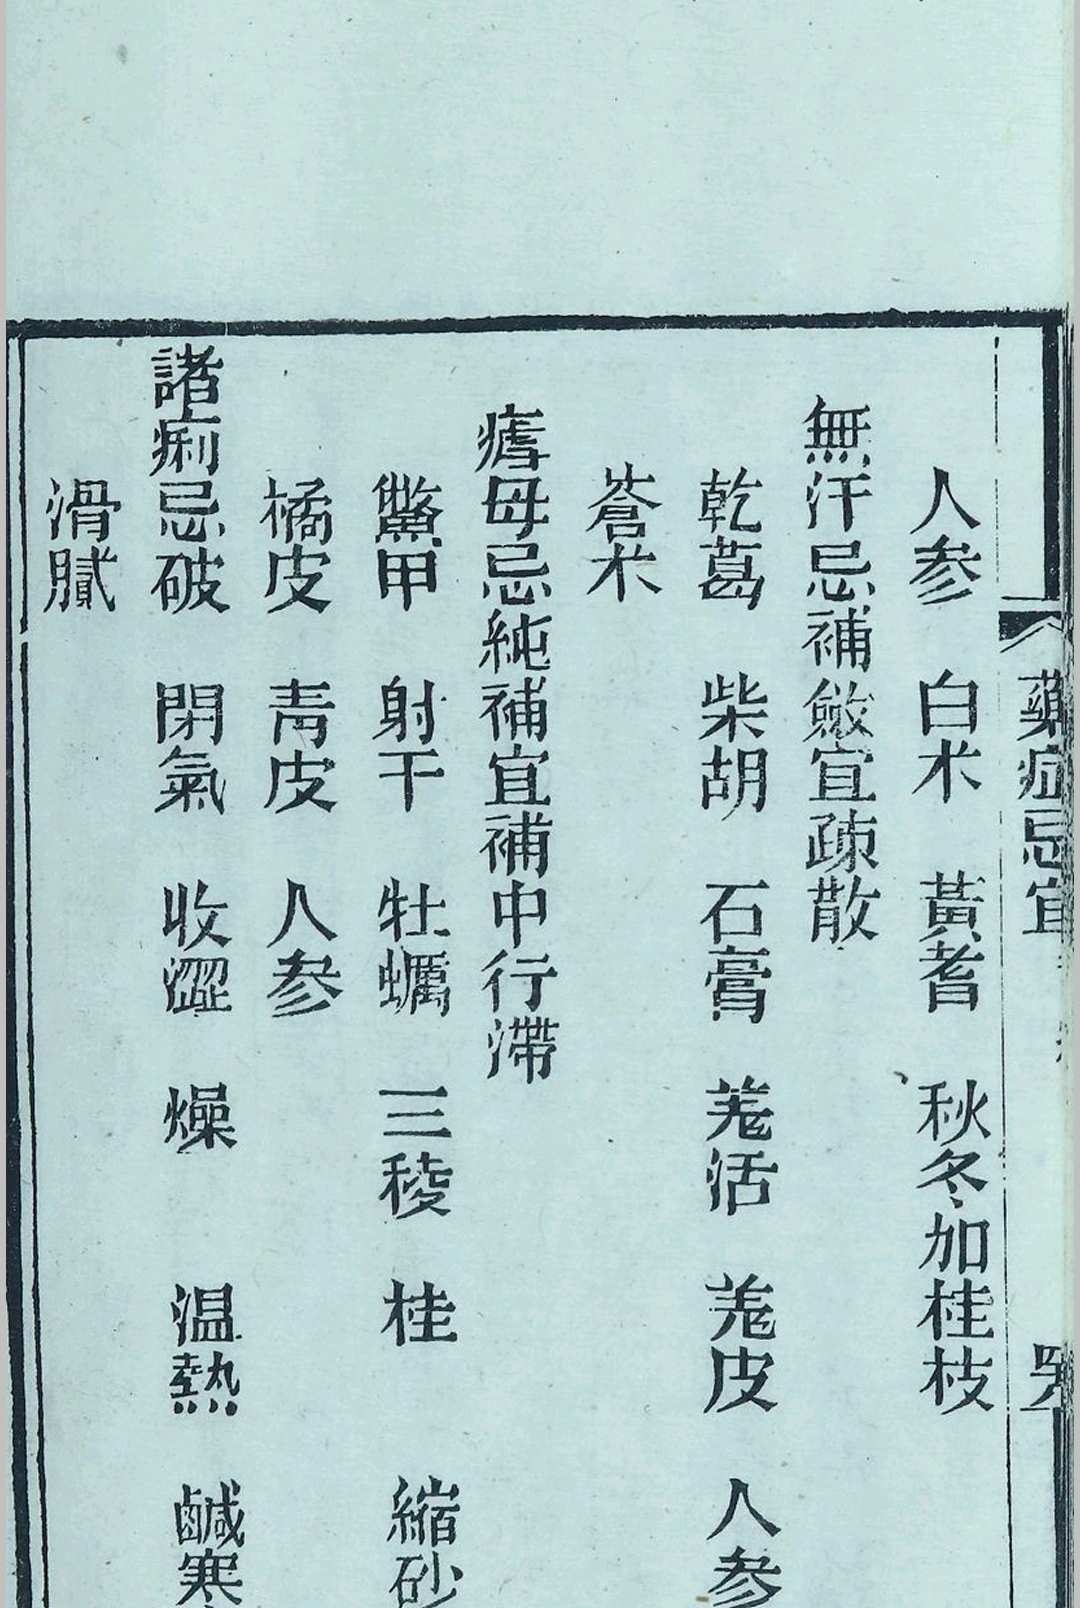 藥症忌宜
人参 白朮 黃耆 秋冬加桂枝
無汗忌補斂宜疎散
乾葛 柴胡 石膏 羗活 羗皮 人参
蒼朮
瘧母忌純補宜補中行滯
鱉甲 射干 牡蠣 三稜 桂 縮砂
橘皮 青皮 人参
諸痢忌破 閉氣 收澀 燥 温熱 鹹寒
滑膩